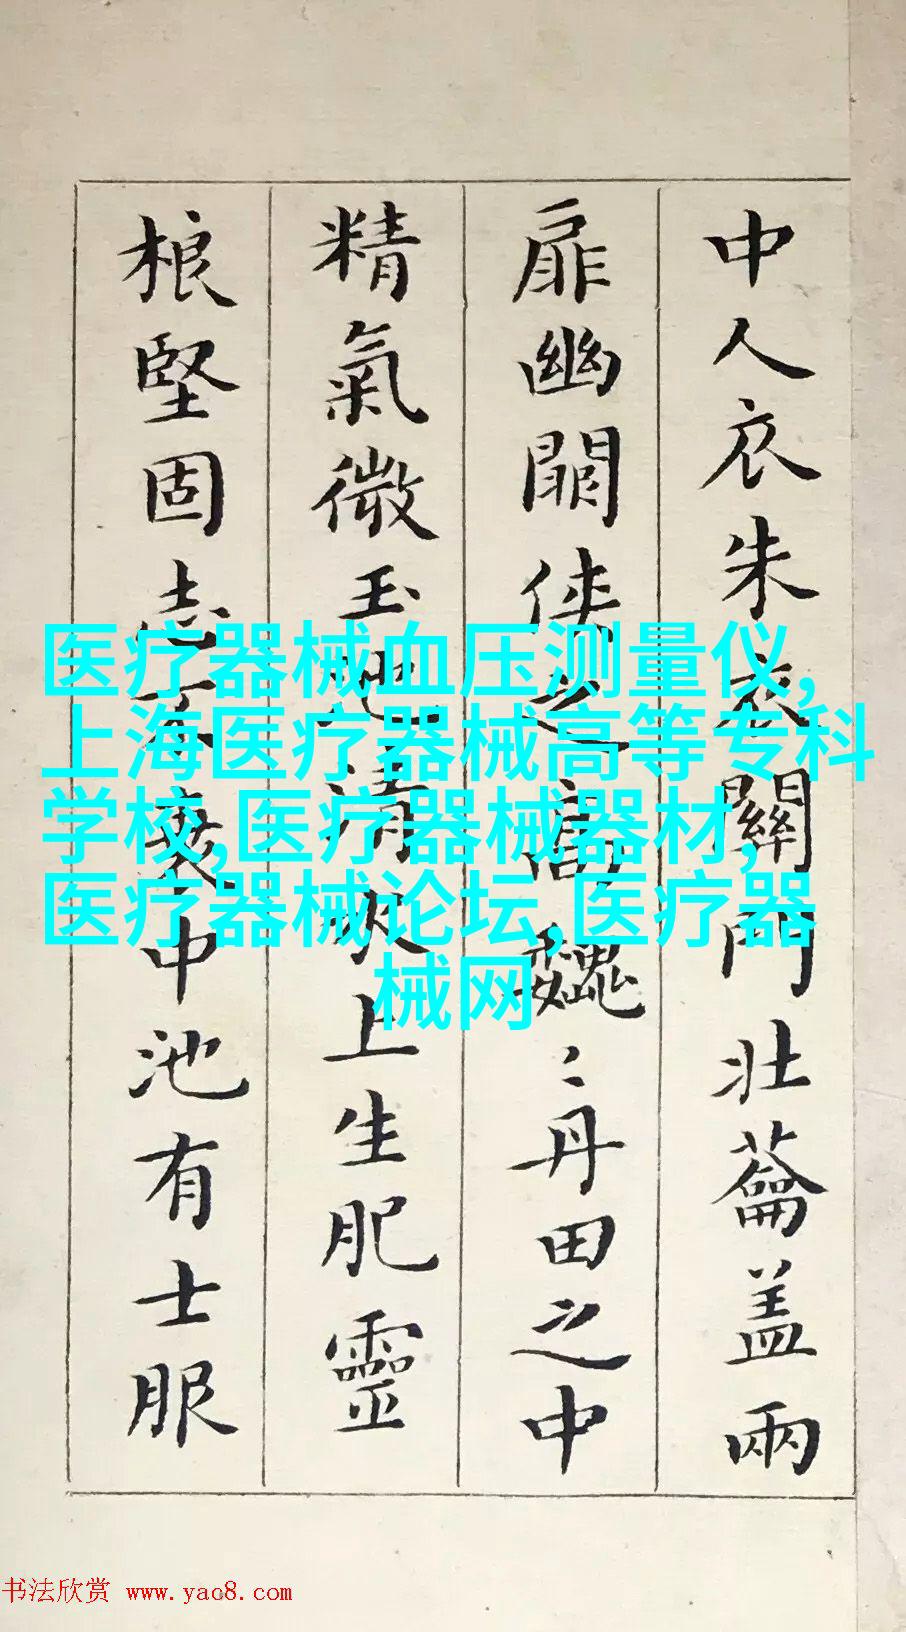 中人衣朱衣關門壯蘥盖兩
扉幽闕侠之高魏〻丹田之中
精氣微玉池清水上生肥靈
根堅固志不衰中池有士服
医疗器械血压测量仪,
上海医疗器械高等专科
学校,医疗器械器材,
医疗器械论坛,医疗器
械网
书法欣赏 www.yac8.com